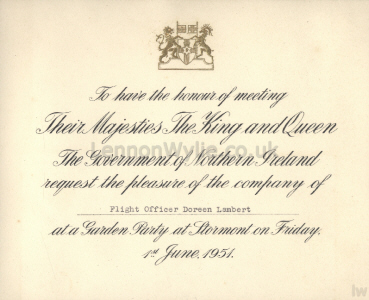 To have the honour of meeting
Their Majesties The King and Queen
LennonWylie.co.uk
The Government of Northern Ireland
request the pleasure of the company of
Flight Officer Doreen Lambert
at a Garden Party at Stormont on Friday,
1st June, 1951.
lw